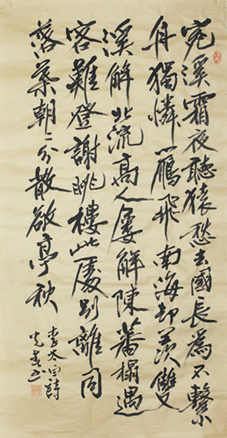 宛溪霜夜聽猿愁去國長為不繫
舟獨憐一雁飛南海却羨雙
溪解北流高人屢解陳蕃榻過
客難登謝朓樓此處別離同
落葉朝々分散敬亭秋
李太白詩